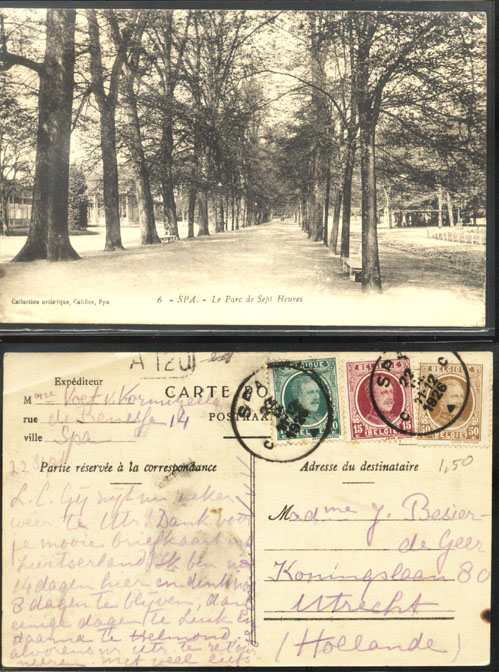 Collection artistique, Califice, Spa
6 - SPA. - Le Parc de Sept Heures
A 1201
Expéditeur
CARTE PO
POSTKAA
Mme Voet v. Kormuyden
rue de Renesse 14
ville Spa
SPA
22
12
1926
BELGIQUE
BELGIE
15 15
BELGIQUE
BELGIE
50 50
Partie réservée à la correspondance
Adresse du destinataire
1,50
L.C. Gij zijt nu zeker
weer te Utr. Dank voor
je mooie briefkaart uit
Zwitserland. Ik ben nu
14 dagen hier en denk nog
8 dagen te blijven, dan
einige dagen te Luik en
daarna te Helmond
alvorens ur Utr. te retour
neeren. Met veel liefs
Madme J. Besier-
de Geer
Koningslaan 80
Utrecht
(Hollande)